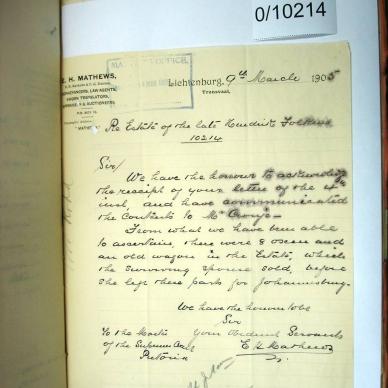 0/10214
E. H. MATHEWS,
CONVEYANCERS, LAW AGENTS,
SWORN TRANSLATORS,
& AUCTIONEERS
P.O. BOX
MATHEWS
Lichtenburg, 9th March 1905
Transvaal,
Re Estate of the late Hendrik
10214
Sir/
We have the honour to acknowledge
the receipt of your letter of the 4th
inst, and have communicated
the contents to Mr Cronje -
From what we have been able
to ascertain, there were 8 oxen and
an old wagon in the Estate, which
the surviving spouse sold, before
she left these parts for Johannesburg.
We have the honour to be
Sir
To the Master Your Obedient Servants
of the Supreme Court E H Mathews
Pretoria